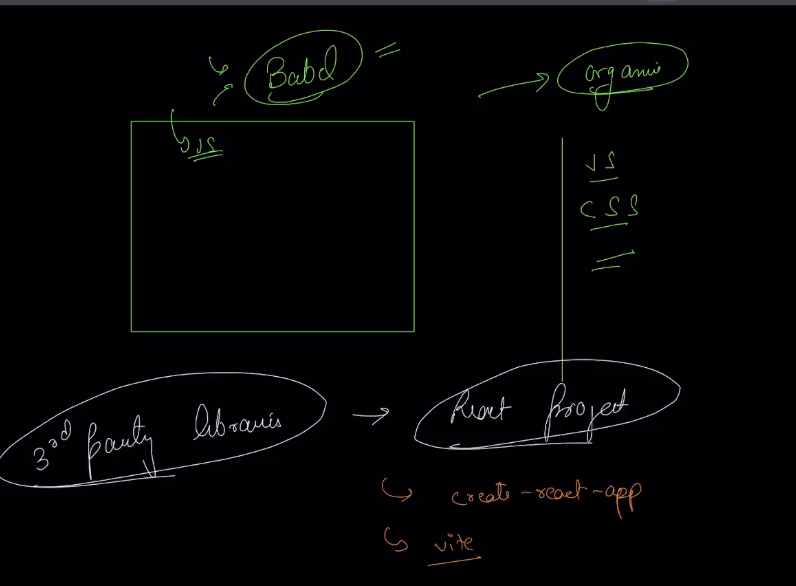 Babel
organis
JS
JS
CSS
3rd party libraries
React project
create-react-app
vite